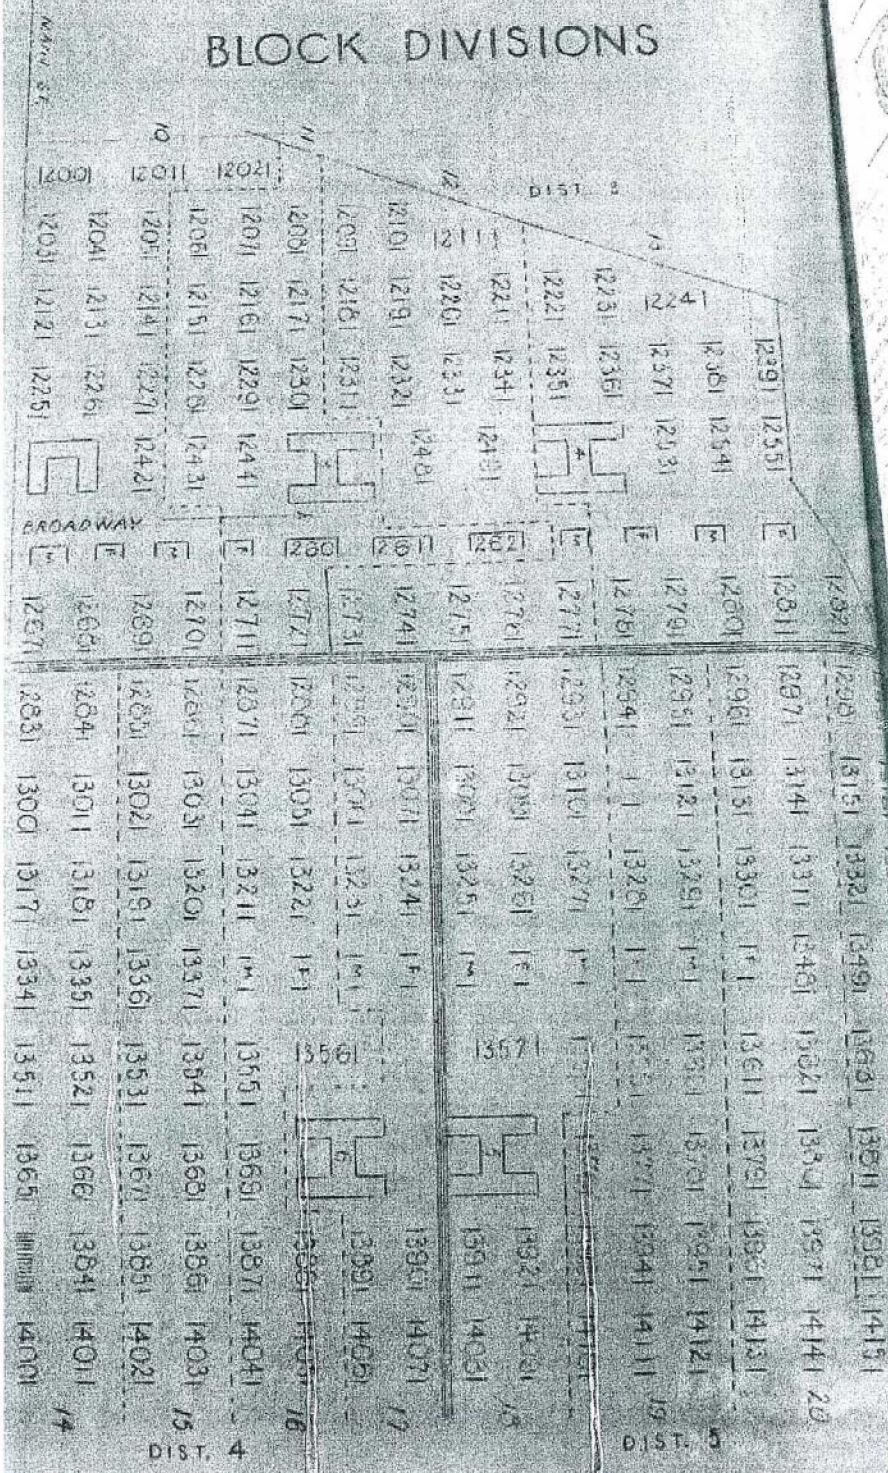 BLOCK DIVISIONS
MAIN ST.
10 11 12
DIST.
1200 1201 1202
1203 1204 1205 1206 1207 1208 1209 1210 1211
1212 1213 1214 1215 1216 1217 1218 1219 1220 1221 1222 1223 1224
1225 1226 1227 1228 1229 1230 1231 1232 1233 1234 1235 1236 1237 1238 1239
1242 1243 1244 1248 1249 4 1253 1254 1255
BROADWAY
M F M F 1260 1261 1262 M F M F
1267 1268 1269 1270 1271 1272 1273 1274 1275 1276 1277 1278 1279 1280 1281 1282
1283 1284 1285 1286 1287 1288 1289 1290 1291 1292 1293 1294 1295 1296 1297 1298
1300 1301 1302 1303 1304 1305 1306 1307 1308 1309 1310 F 1312 1313 1314 1315
1317 1318 1319 1320 1321 1322 1323 1324 1325 1326 1327 1328 1329 1330 1331 1332
1334 1335 1336 1337 M F M F M F M F M F 1348 1349
1351 1352 1353 1354 1355 1356 1357 1361 1362 1363
1365 1366 1367 1368 1369 6 5 1377 1378 1379 1380 1381
1384 1385 1386 1387 1388 1389 1390 1391 1392 1394 1395 1396 1397 1398
1400 1401 1402 1403 1404 1405 1406 1407 1408 1409 1411 1412 1413 1414 1415
14 15 16 17 18 19 20
DIST. 4 DIST. 5